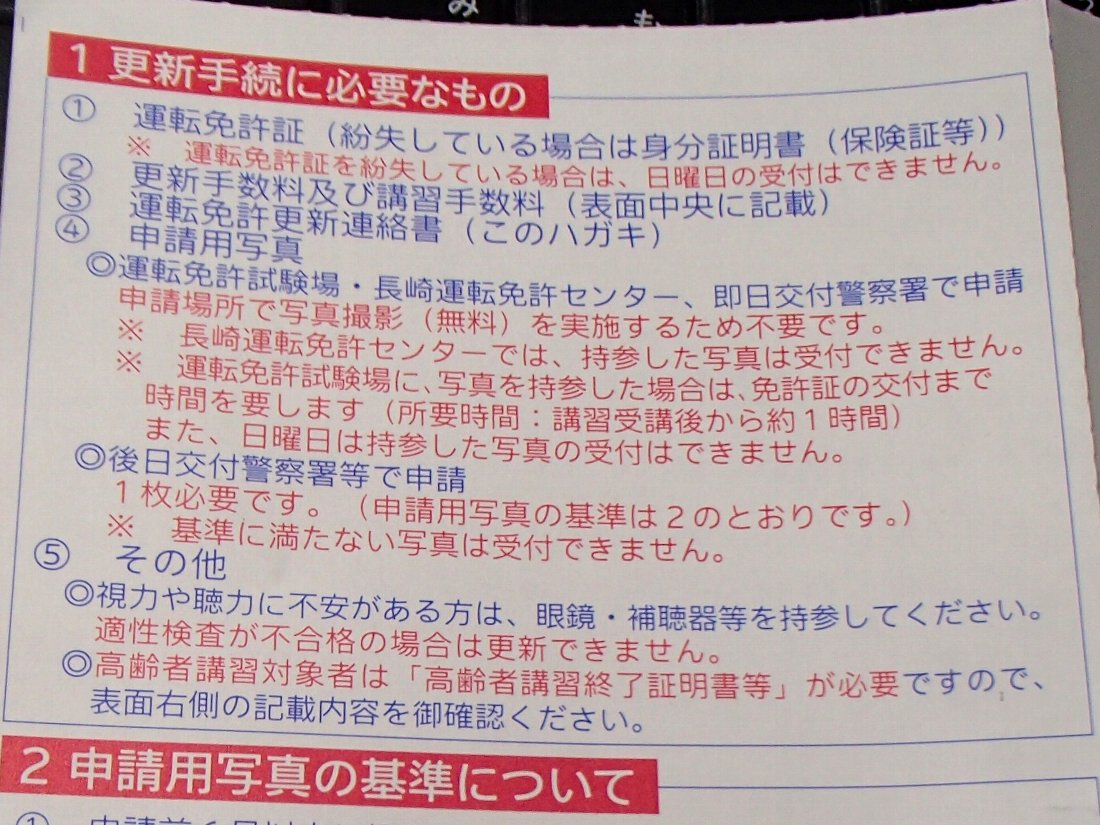 み
も
1 更新手続に必要なもの
① 運転免許証（紛失している場合は身分証明書（保険証等））
※ 運転免許証を紛失している場合は、日曜日の受付はできません。
② 更新手数料及び講習手数料（表面中央に記載）
③ 運転免許更新連絡書（このハガキ）
④ 申請用写真
◎運転免許試験場・長崎運転免許センター、即日交付警察署で申請
申請場所で写真撮影（無料）を実施するため不要です。
※ 長崎運転免許センターでは、持参した写真は受付できません。
※ 運転免許試験場に、写真を持参した場合は、免許証の交付まで
時間を要します（所要時間：講習受講後から約１時間）
また、日曜日は持参した写真の受付はできません。
◎後日交付警察署等で申請
１枚必要です。（申請用写真の基準は２のとおりです。）
※ 基準に満たない写真は受付できません。
⑤ その他
◎視力や聴力に不安がある方は、眼鏡・補聴器等を持参してください。
適性検査が不合格の場合は更新できません。
◎高齢者講習対象者は「高齢者講習終了証明書等」が必要ですので、
表面右側の記載内容を御確認ください。
2 申請用写真の基準について
①